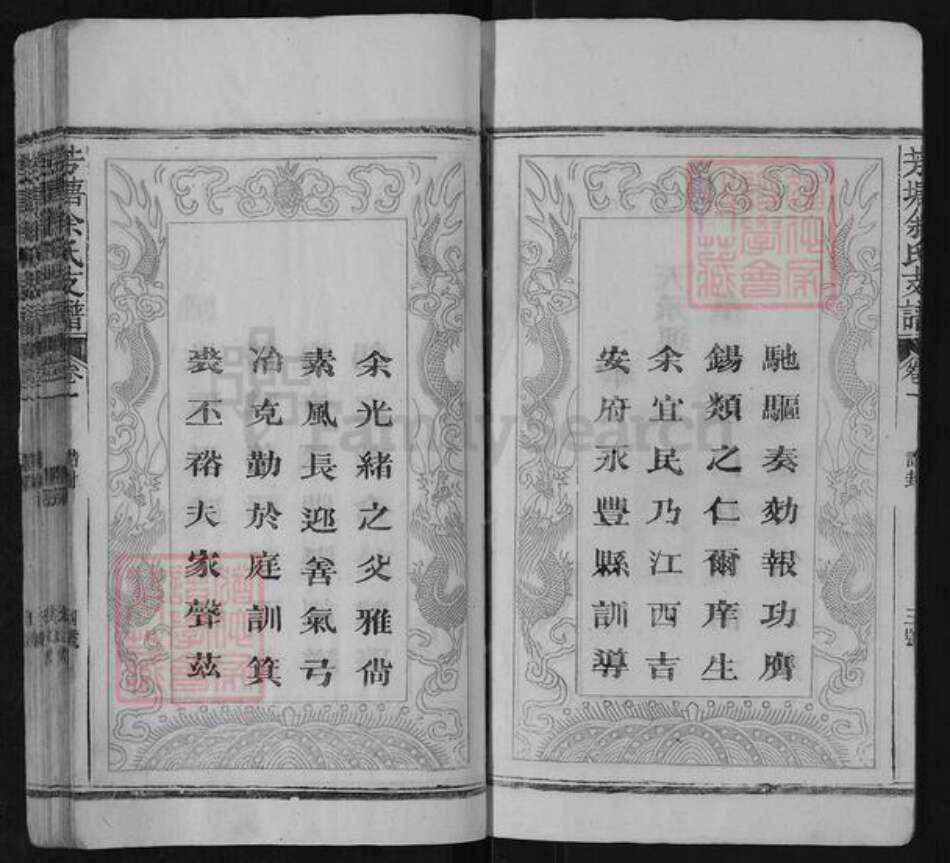 馳驅奏効報功膺
錫類之仁爾庠生
余宜民乃江西吉
安府永豐縣訓導
余光緒之父雅尙
素風長迎善氣弓
冶克勤於庭訓箕
裘丕裕夫家聲茲
余氏支譜
卷一
余氏支譜
卷一
FamilySearch